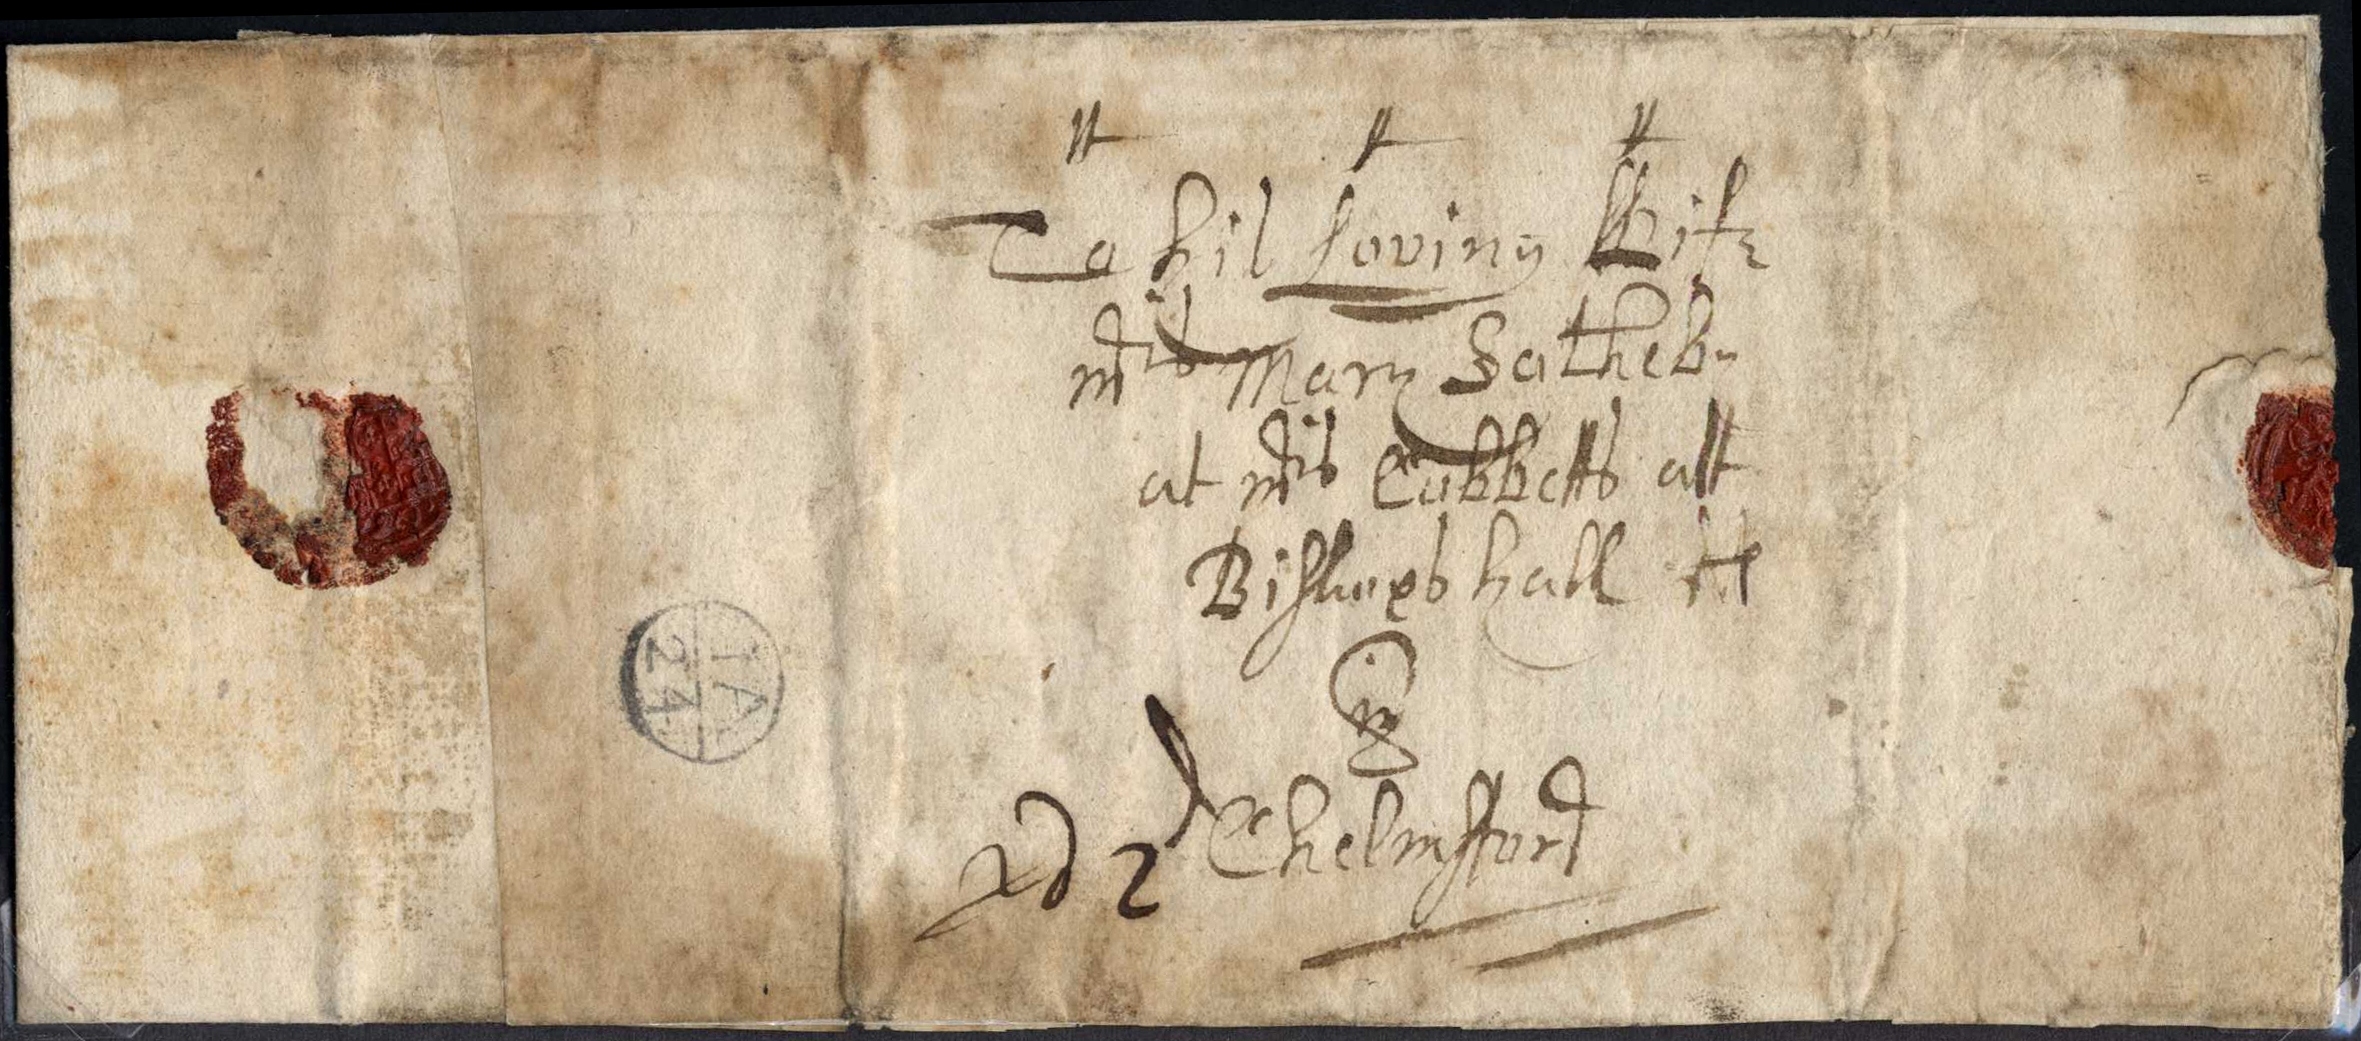 To his Loving Wife
mris Mary Sotheby
at mris Cobbetts att
Bishops hall
in
Chelmsford
pd 2
IA
24